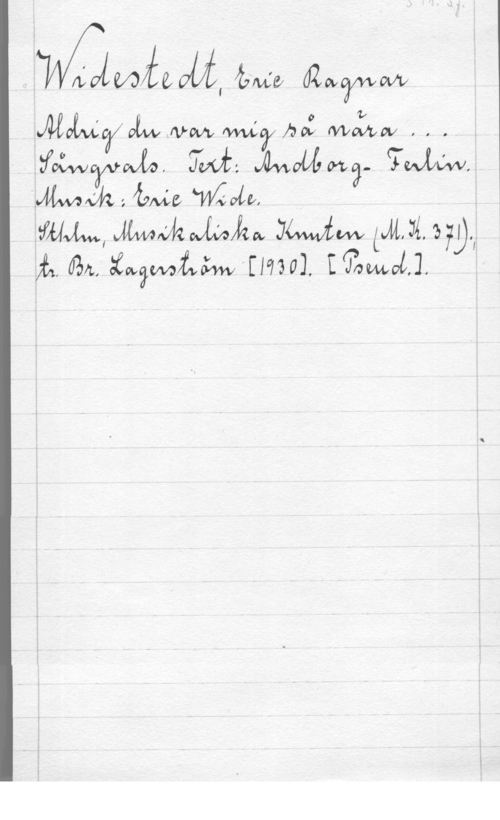 Widestedt, Eric Ragnar
Aldrig du var mig så nära . . .
Sångvals. Text: Andborg- Ferlin.
Musik: Eric Wide.
Sthlm, Musikaliska Knuten (M.K. 371);
tr. Br. Lagerström [1930]. [Pseud.].